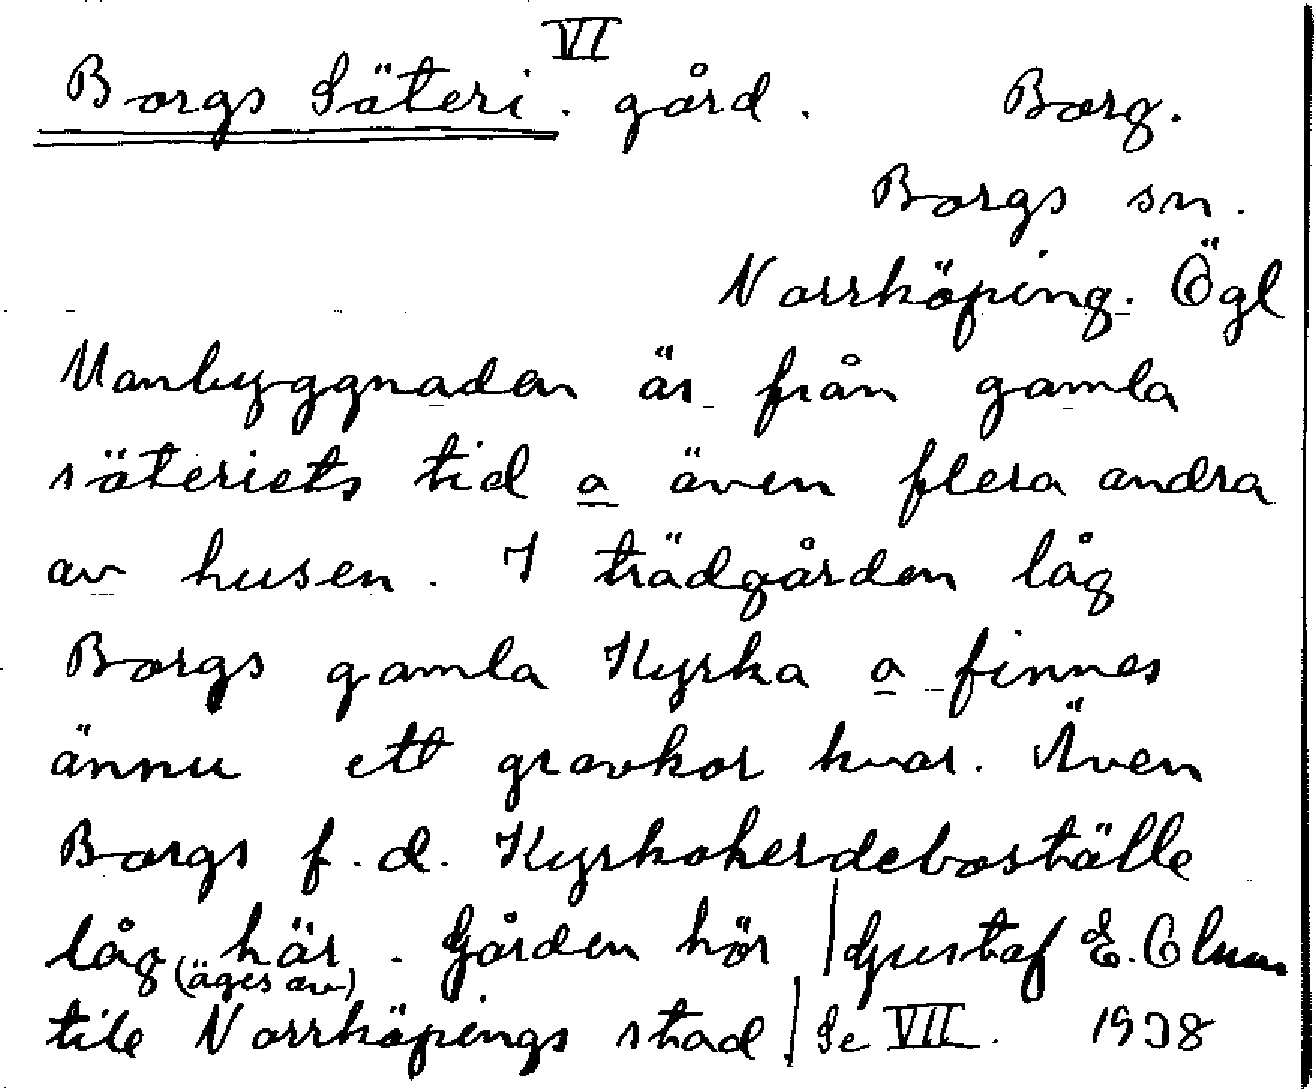 VI
Borgs Säteri. gård. Borg.
Borgs sn.
Norrköping. Ögl
Manbyggnaden är från gamla
säteriets tid a även flera andra
av husen. I trädgården låg
Borgs gamla Kyrka a finnes
ännu ett gravkor kvar. Även
Borgs f.d. Kyrkoherdeboställe
låg här. Gården hör | Gustaf E.
(äges av)
till Norrköpings stad | Se VII. 1938